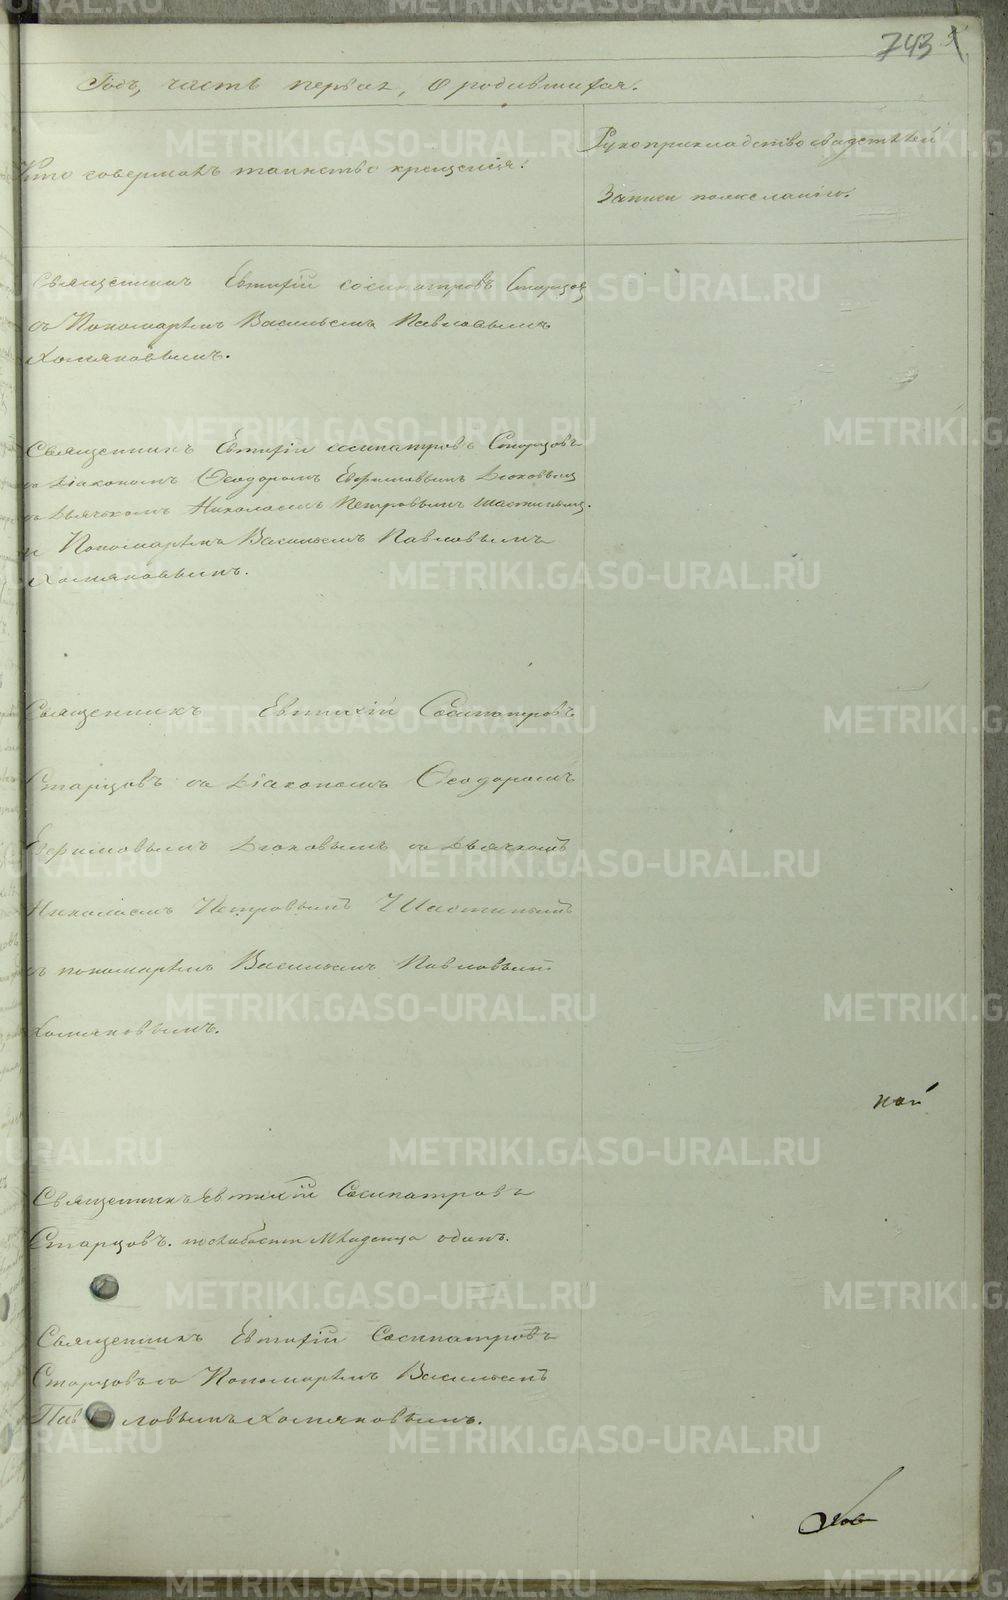 743
Годъ, часть первая, о родившихся.
Кто совершалъ таинство крещенія:
Рукоприкладство свидѣтелей
Записи по желанію.
Священникъ Евтихій Сосипатровъ Старцов
съ Пономарёмъ Васильемъ Павловымъ
Хомяковымъ.
Священникъ Евтихій Сосипатровъ Старцовъ
съ Діакономъ Феодоромъ Ефимовымъ
съ Дьячкомъ Николаемъ Петровымъ
и Пономарёмъ Васильемъ Павловымъ
Хомяковымъ.
Священникъ Евтихій Сосипатровъ
Старцовъ съ Діакономъ Феодоромъ
Ефимовымъ съ Дьячкомъ
Николаемъ Петровымъ
съ пономарёмъ Васильемъ Павловымъ
Хомяковымъ.
ной
Священникъ Евтихій Сосипатровъ
Старцовъ. по слабости младенца одинъ.
Священникъ Евтихій Сосипатровъ
Старцовъ съ Пономарёмъ Васильемъ
Павловымъ Хомяковымъ.
METRIKI.GASO-URAL.RU